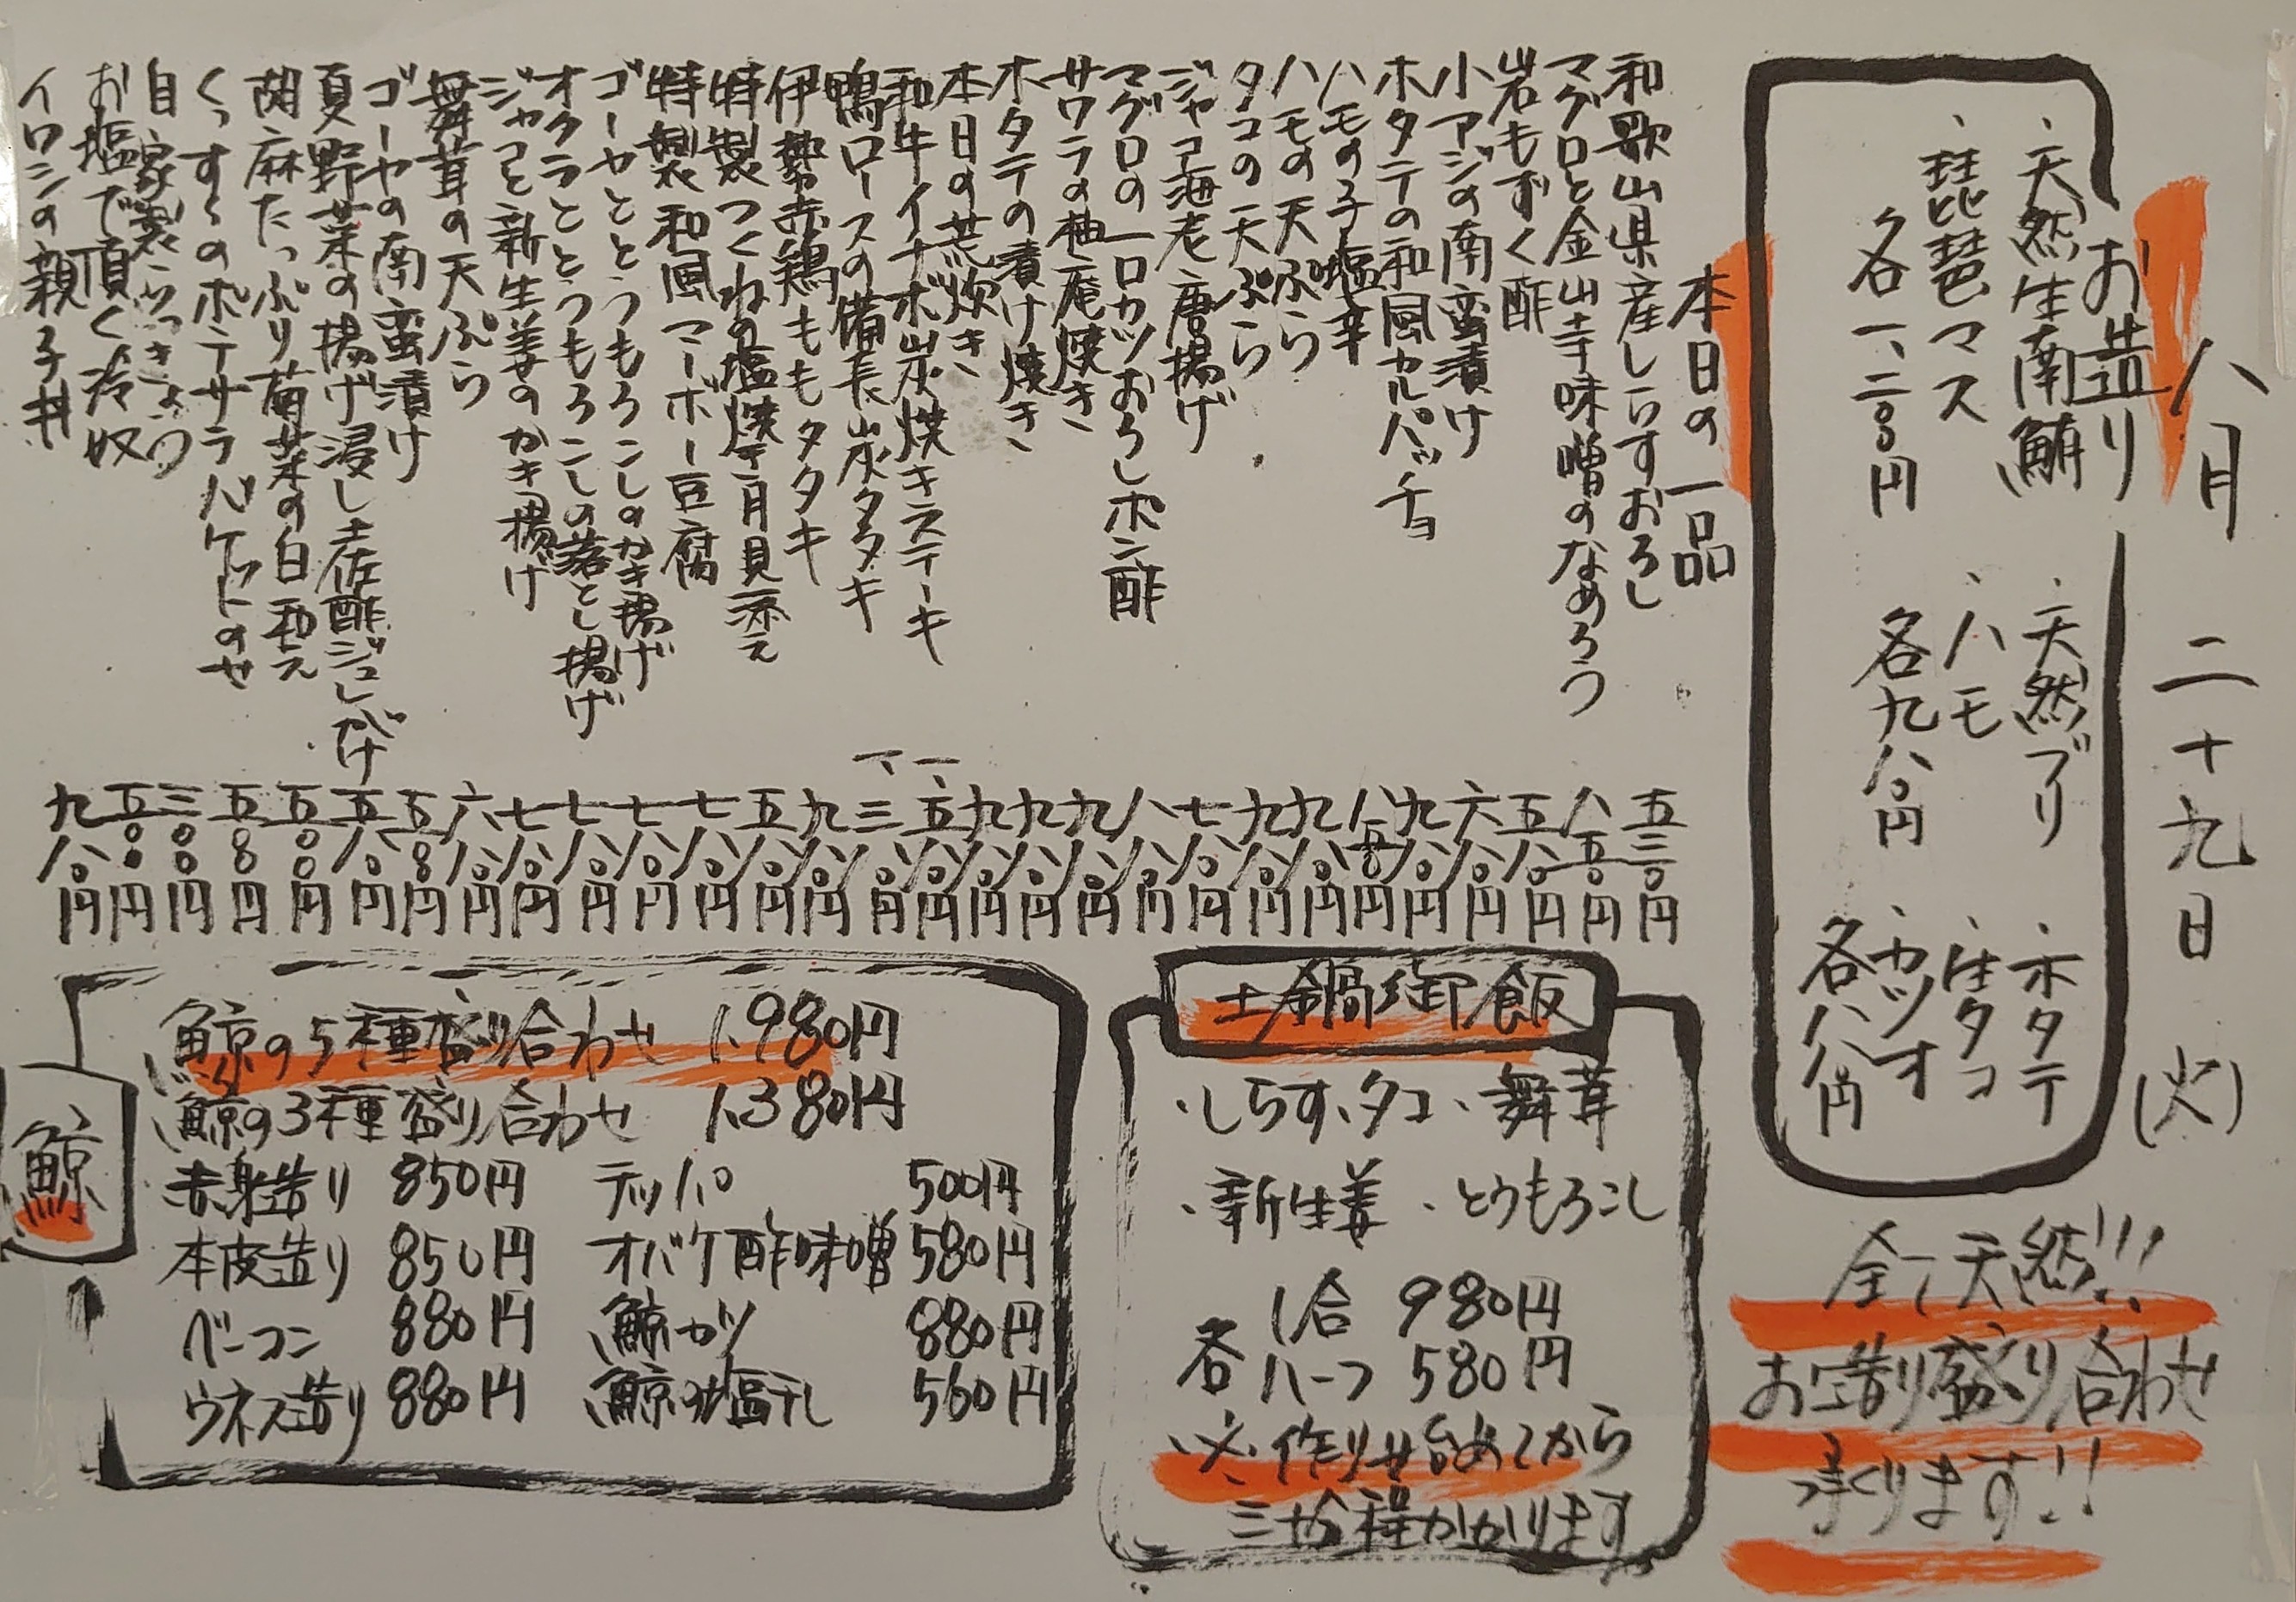 八月二十九日(火)
お造り
・天然生南鮪
・琵琶マス
各一、二〇〇円
・天然ブリ
・ハモ
各九八〇円
・ホタテ
・生タコ
・カツオ
各八八〇円
全て天然!!!
お造り盛り合わせ
承ります!!
本日の一品
和歌山県産しらすおろし 五三〇円
マグロと金山寺味噌のなめろう 八五〇円
岩もずく酢 五八〇円
小アジの南蛮漬け 六八〇円
ホタテの和風カルパッチョ 九八〇円
ハモの子塩辛 八五〇円
ハモの天ぷら 九八〇円
タコの天ぷら 九八〇円
ジャコ海老唐揚げ 七八〇円
マグロの一口カツおろしポン酢 八八〇円
サワラの柚庵焼き 九八〇円
ホタテの漬け焼き 九八〇円
本日の荒炊き 九八〇円
和牛イチボ炭焼きステーキ 一、五八〇円
鴨ロースの備長炭タタキ 一、三八〇円
伊勢赤鶏ももタタキ 九八〇円
特製つくねの塩焼き月見添え 五八〇円
特製和風マーボー豆腐 七八〇円
ゴーヤととうもろこしのかき揚げ 七八〇円
オクラととうもろこしの落とし揚げ 七八〇円
ジャコと新生姜のかき揚げ 七八〇円
舞茸の天ぷら 六八〇円
ゴーヤの南蛮漬け 五八〇円
夏野菜の揚げ浸し土佐酢ジュレがけ 五八〇円
胡麻たっぷり菊菜の白和え 五〇〇円
くっすくのポテサラバケットのせ 五八〇円
自家製らっきょう 三〇〇円
お塩で頂く冷奴 五〇〇円
イワシの親子丼 九八〇円
土鍋御飯
・しらす・タコ・舞茸
・新生姜・とうもろこし
各
1合 980円
ハーフ 580円
※作り始めてから
三十分程かかります
鯨
鯨の5種盛り合わせ 1,980円
鯨の3種盛り合わせ 1,380円
赤身造り 850円 テッパ 500円
本皮造り 850円 オバケ酢味噌 580円
ベーコン 880円 鯨カツ 880円
ウネス造り 880円 鯨の塩干し 560円